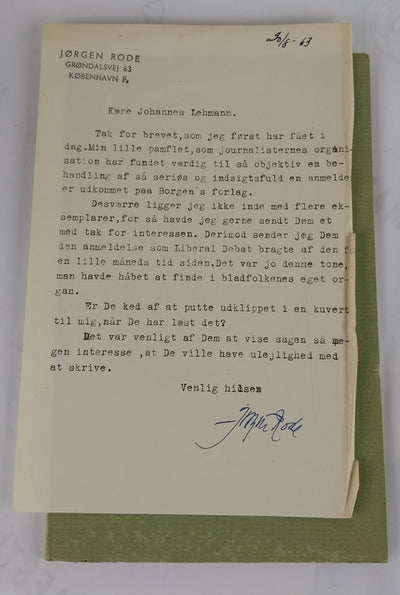 30/8-63
JØRGEN RODE
GRØNDALSVEJ 63
KØBENHAVN F.
Kære Johannes Lehmann.
Tak for brevet, som jeg først har fået i
dag. Min lille pamflet, som journalisternes organi-
sation har fundet værdig til så objektiv en be-
handling af så seriøs og indsigtsfuld en anmelde
er udkommet paa Borgen's forlag.
Desværre ligger jeg ikke inde med flere ek-
semplarer, for så havde jeg gerne sendt Dem et
med tak for interessen. Derimod sender jeg Dem
den anmeldelse som Liberal Debat bragte af den f
en lille måneds tid siden. Det var jo denne tone,
man havde håbet at finde i bladfolkenes eget or-
gan.
Er De ked af at putte udklippet i en kuvert
til mig, når De har læst det?
Det var venligt af Dem at vise sagen så me-
gen interesse, at De ville have ulejlighed med
at skrive.
Venlig hilsen
Jørgen Rode